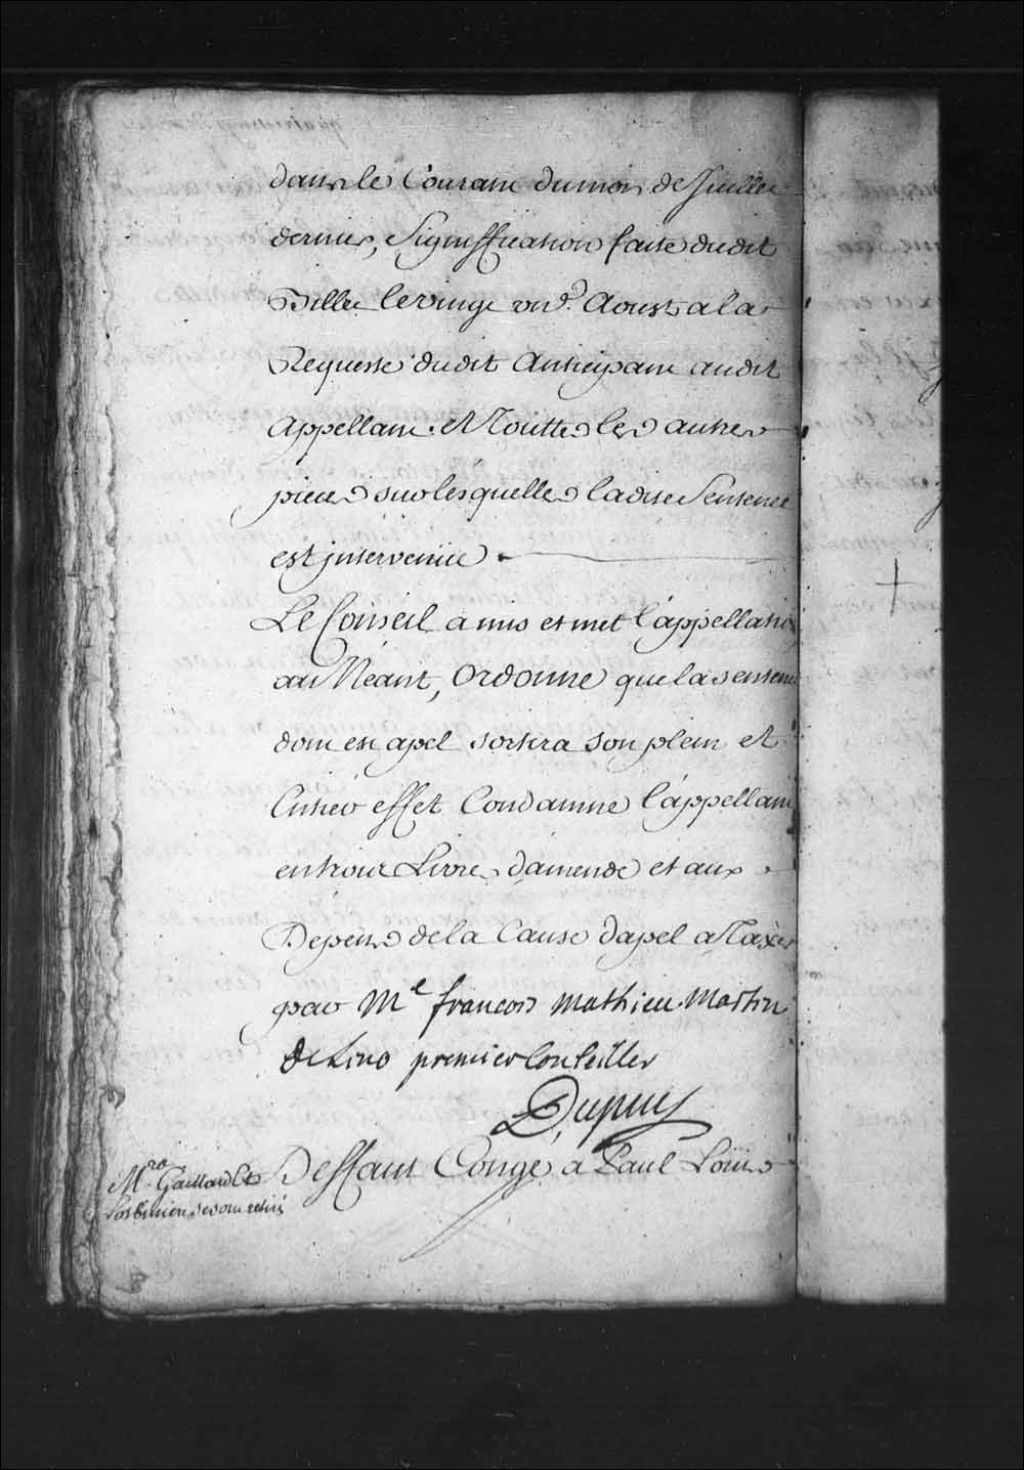 dans le Courant du mois de Juillet
dernier, Signiffication faite dudit
Billet le vingt un.e Aoust a la
Requeste dudit Anticipant audit
Appellant. Et Touttes les autres
pieces sur lesquelles ladite Sentence
est jntervenüe
Le Conseil a mis et met l'appellation
au Néant, Ordonne que la sentence
dont est apel sortira son plein et
Entier effet Condamne l'appellant
en trois Livres d'amende et aux
Depens de la Cause d'apel a Taxer
par Me françois Mathieu Martin
de Lino premier Conseiller
Dupuy
Mrs Gaillard et
Deffaut Congé a Paul Loüis
se sont retiré